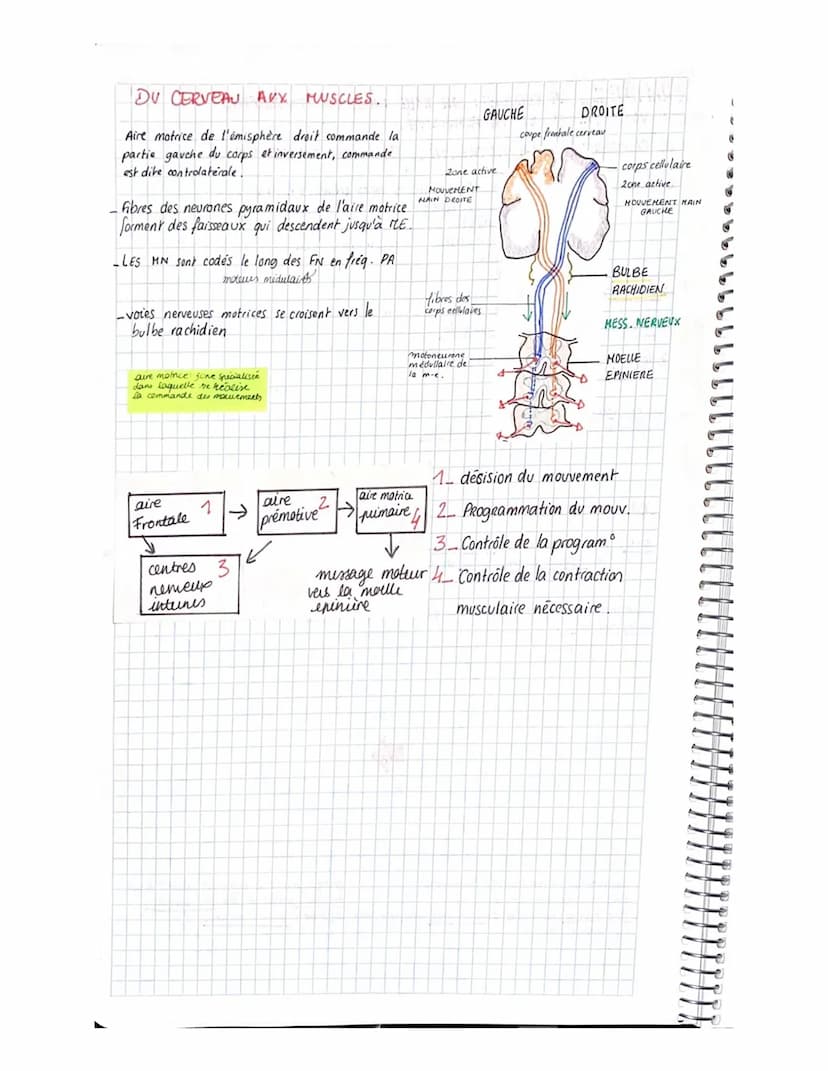 DU CERVEAU AUX MUSCLES.
Aire motrice de l'émisphère droit commande la
partie gauche du corps et inversement, commande
est dite controlatérale.
- Fibres des neurones pyramidaux de l'aire motrice
forment des faisseaux qui descendent jusqu'à ME.
- LES MN sont codés le long des FN en fréq. PA
moteurs médulaires
- voies nerveuses motrices se croisent vers le
bulbe rachidien
aire motrice: zone spécialisée
dans laquelle se réalise
la commande des mouvements
GAUCHE
DROITE
coupe frontale cerveau
zone active
MOUVEMENT
MAIN DROITE
corps cellulaire
zone active
MOUVEMENT MAIN
GAUCHE
BULBE
RACHIDIEN
fibres des
corps cellulaires
MESS. NERVEUX
motoneurone
médullaire de
la m-e.
MOELLE
EPINIERE
aire
Frontale 1
aire
prémotive 2
aire motrice
primaire 4
centres
nerveux
internes 3
message moteur
vers la moelle
epinière
1_ désision du mouvement
2_ Programmation du mouv.
3_ Contrôle de la program°
4_ Contrôle de la contraction
musculaire nécessaire.